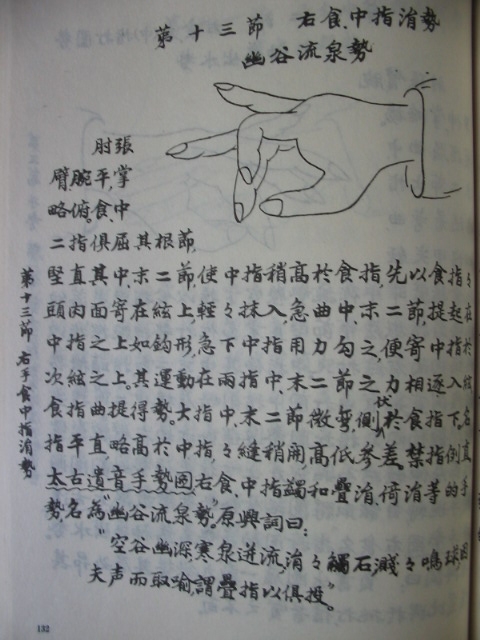 第十三節 右食、中指涓勢
幽谷流泉勢
肘張
臂腕平,掌
略俯。食中
二指俱屈其根節,
堅直其中、末二節,使中指稍高於食指,先以食指々
頭肉面寄在絃上,輕々抹入,急曲中、末二節,提起在
中指之上,如鈎形,急下中指用力勾之,便寄中指於
次絃之上。其運動在兩指中、末二節之力相逐入絃
食指曲提得勢。大指中、末二節微彎,側伏於食指下,名
指平直略高於中指,々縫稍開,高低参差。禁指倒直
太古遺音手勢図右食、中指蠲和疊涓、倚涓等的手
勢名為“幽谷流泉勢”,原興詞曰:
“空谷幽深,寒泉迸流,涓々觸石,濺々鳴球,因
夫声而取喻,謂疊指以俱投”。
第十三節 右手食中指涓勢
132